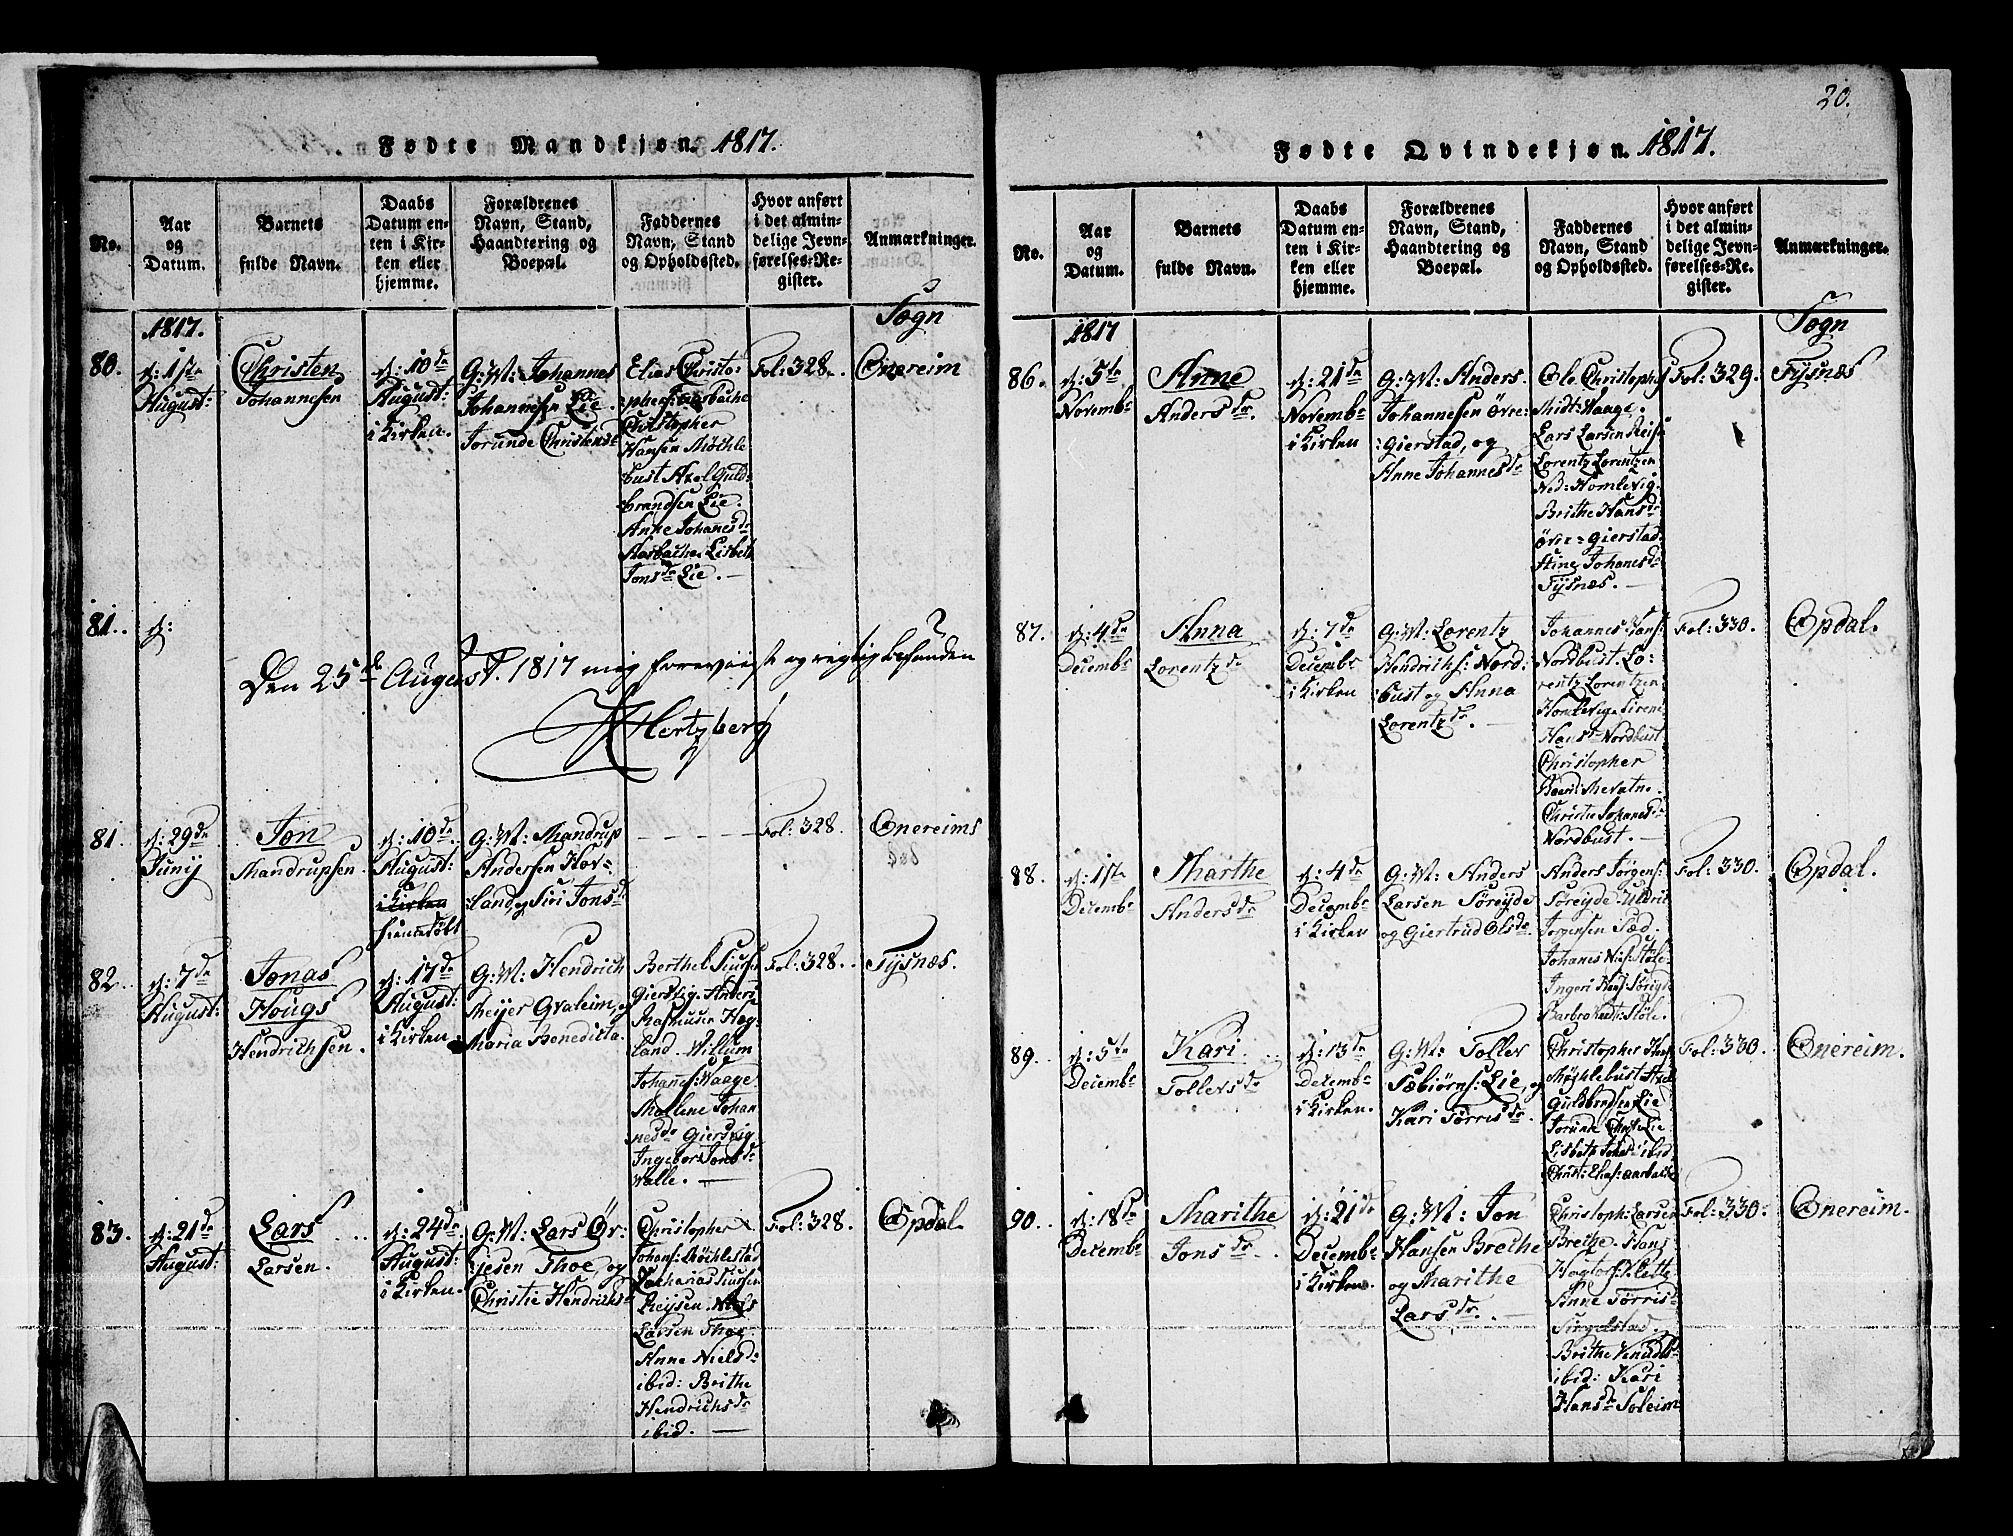 Fødte Mandkjøn. 1817.
No.
Aar
og
Datum.
Barnets
fulde Navn.
Daabs
Datum en-
ten i Kir-
ken eller
hjemme.
Forældrenes
Navn, Stand,
Haandtering og
Boepæl.
Faddernes
Navn, Stand
og Opholdssted.
Hvor anført
i det almin-
delige Jevn-
førelses-Re-
gister.
Anmærkninger.
Sogn
1817.
80.
d: 1ste
August:
Christen
Johannesen
d: 10de
August:
i Kirken.
G: M: Johannes
Johannesen Lie
Jorunde Christensd
Elias Christo-
Christopher
Hansen Møchle
bust Axel Guld-
brandsen Lie.
Anne Johanesdr
Aarbache Lisbeth
Jonsdr Lie. —
Fol: 328.
Onereim
81.
d:
Den 25de August. 1817 mig foreviist og rigtig befunden
Hertzberg
81.
d: 29de
Junij
Jon
Mandrupsen.
d: 10de
August:
i Kirken
hiemedøbt
G: M: Mandrup
Andersen Hov-
land og Siri Jonsd
Fol: 328.
Onereims
82.
d: 7de
August:
Jonas
Hougs
Hendrichsen.
d: 17de
August:
i Kirken
G: M: Hendrich
Meyer Gvaleim, og
Maria Benedicta.
Berthel Siurs:
Giersvig. Anders
Rasmusen Hog-
land. Willum
Johanes: Waage.
Mallene Johan
nesdr Giersvig
Ingebor Jonsdr
Walle. —
Fol: 328.
Tysnæs.
83.
d: 21de
August:
Lars
Larsen.
d: 24de
August:
i Kirken.
G: M: Lars Ør-
jesen Thoe, og
Christie Hendrichsd
Christopher
Johans: Møchlestad
Zacharias Siursen
Reysen. Niels
Larsen Thoe
Anne Nielsdr
ibid: Brithe
Hendrichsdr
ibid. —
Fol: 328.
Opdal.
20.
Fødte Qvindekjøn. 1817.
No.
Aar
og
Datum.
Barnets
fulde Navn.
Daabs
Datum en-
ten i Kir-
ken eller
hjemme.
Forældrenes
Navn, Stand,
Haandtering og
Boepæl.
Faddernes
Navn, Stand
og Opholdssted.
Hvor anført
i det almin-
delige Jevn-
førelses-Re-
gister.
Anmærkninger.
Sogn
1817
86.
d: 5te
Novembr
Anne
Andersdr.
d: 21de
Novembr
i Kirken
G: M: Anders
Johannesen Øvre-
Gierstad, og
Anne Johannesdr
Ole Christophs
Midt: Waage.
Lars Larsen Reis
Lorentz Lorentzen
Ned: Homlevig.
Brithe Hansdr
Øvre-Gierstad.
Stine Johanesdr
Tysnæs. —
Fol: 329.
Tysnæs
87.
d: 4de
Decembr
Anna
Lorentzdr
d: 7de
Decembr
i Kirken
G: M: Lorentz
Hendrichs: Nord-
bust og Anna
Lorentzdr. —
Johannes Hans:
Nordbust. Lo-
rentz Lorentzen
Homlevig. Sirene
Hansdr Nordbust
Christopher
Christie Johanesdr
Nordbust. —
Fol: 330.
Opdal.
88.
d: 1ste
Decembr
Marthe
Andersdr
d: 4de
Decembr
i Kirken
G: M: Anders
Larsen Søreyde
og Giertrud Olsdr
Anders Jørgens:
Søreyde. Uldrik
Jørgensen Sæd.
Johanes Niels: Støle.
Fol: 330.
Opdal.
89.
d: 5te
Decembr
Kari
Tollevsdr
d: 13de
Decembr
i Kirken.
G: M: Tollev
Sæbiørns: Lie, og
Kari Torrisdr.
Christopher Hans:
Møchlebust Axel
Guldbrandsen Lie
Jorunde Christ: Lie
Lisbeth Jonsd: ibid
Christ: Elias: Aarbache
Fol: 330.
Onereim.
90.
d: 18de
Decembr
Marithe
Jonsdr.
d: 21de
Decembr
i Kirken.
G: M: Jon
Hansen Brethe
og Marithe
Larsdr. —
Christoph: Larsen
Brethe. Hans
Anne Torris-
Singelstad.
Brithe Knudsd
ibid: Kari
Hansdr Soleim
Fol: 330.
Onereim.